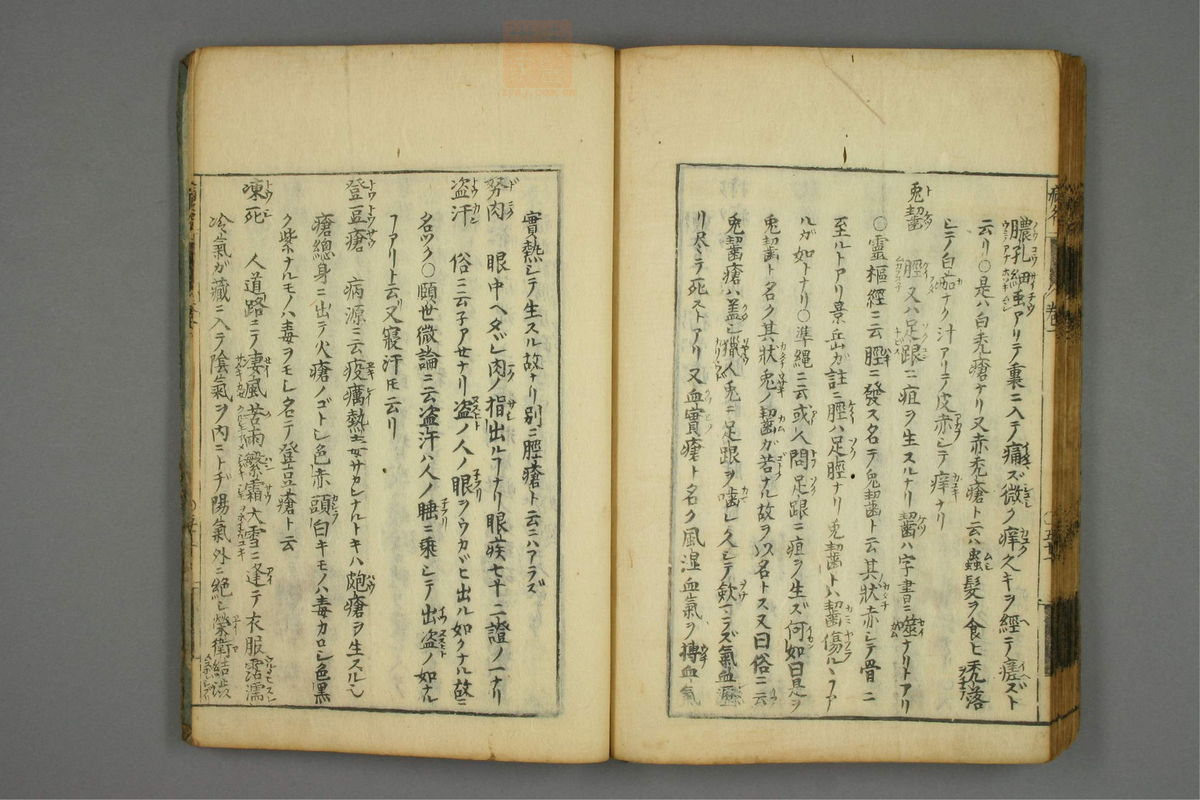 膿孔細虫アリテ裏ニ入テ痛ズ微ク痒久キヲ經テ瘥ズト
云リ〇是ハ白禿瘡ケリ又赤禿瘡ト云ハ蟲髮ヲ食ヒ禿落
シテ白痂ナク汁アリテ皮赤シテ痒ナリ
兎齧 脛又ハ足跟ニ疽ヲ生スルナリ齧ハ字書ニ噬ナリトアリ
〇靈樞經ニ云脛ニ發ス名テ兎齧ト云其狀赤シテ骨ニ
至ルトアリ景岳ガ註ニ脛ハ足脛ナリ兎齧トハ齧傷ルヽフア
ルガ如トナリ〇準繩ニ云或人問足跟ニ疽ヲ生ズ何如曰是ヲ
兎齧ト名ク其狀兎ノ齧ガ若ナル故ヲ以名トス又曰俗ニ云
兎齧瘡ハ盖シ獵人兎ニ足跟ヲ嚙レ久シテ歛ラズ氣血
リ尽テ死ストアリ又血實瘡ト名ク風湿血氣ヲ搏血氣
實熱シテ生スル故ナリ別ニ脛瘡ト云ニハアラズ
努肉 眼中ヘダシ肉ノ指出ルフナリ眼疾七十二證ノ一ナリ
盗汗 俗ニ云子アセナリ盗ノ人ノ眠ヲウカヾヒ出ル如クナル故ニ
名ツク〇頤世微論ニ云盗汗ハ人ノ睡ニ乘シテ出盗ノ如ナル
フアリト云又寢汗トモ云リ
登豆瘡 病源ニ云疫癘熱毒サカンナルトキハ皰瘡ヲ生スルシ
瘡總身ニ出テ火瘡ノゴトシ色赤頭白キモノハ毒カロシ色黑
ク紫ナルモノハ毒ヲモシ名テ登豆瘡ト云
凍死 人道路ニテ凄風苦雨繁霜大雪ニ逢テ衣服霑濡
冷氣ガ藏ニ入テ陰氣ヲ内ニトヂ陽氣外ニ絕シ榮衛結澁